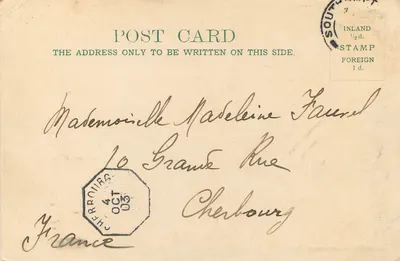 POST CARD
THE ADDRESS ONLY TO BE WRITTEN ON THIS SIDE.
INLAND
½d.
STAMP
FOREIGN
1d.
Mademoiselle Madeleine
10 Grande Rue
Cherbourg
France
CHERBOURG
4
OCT
03